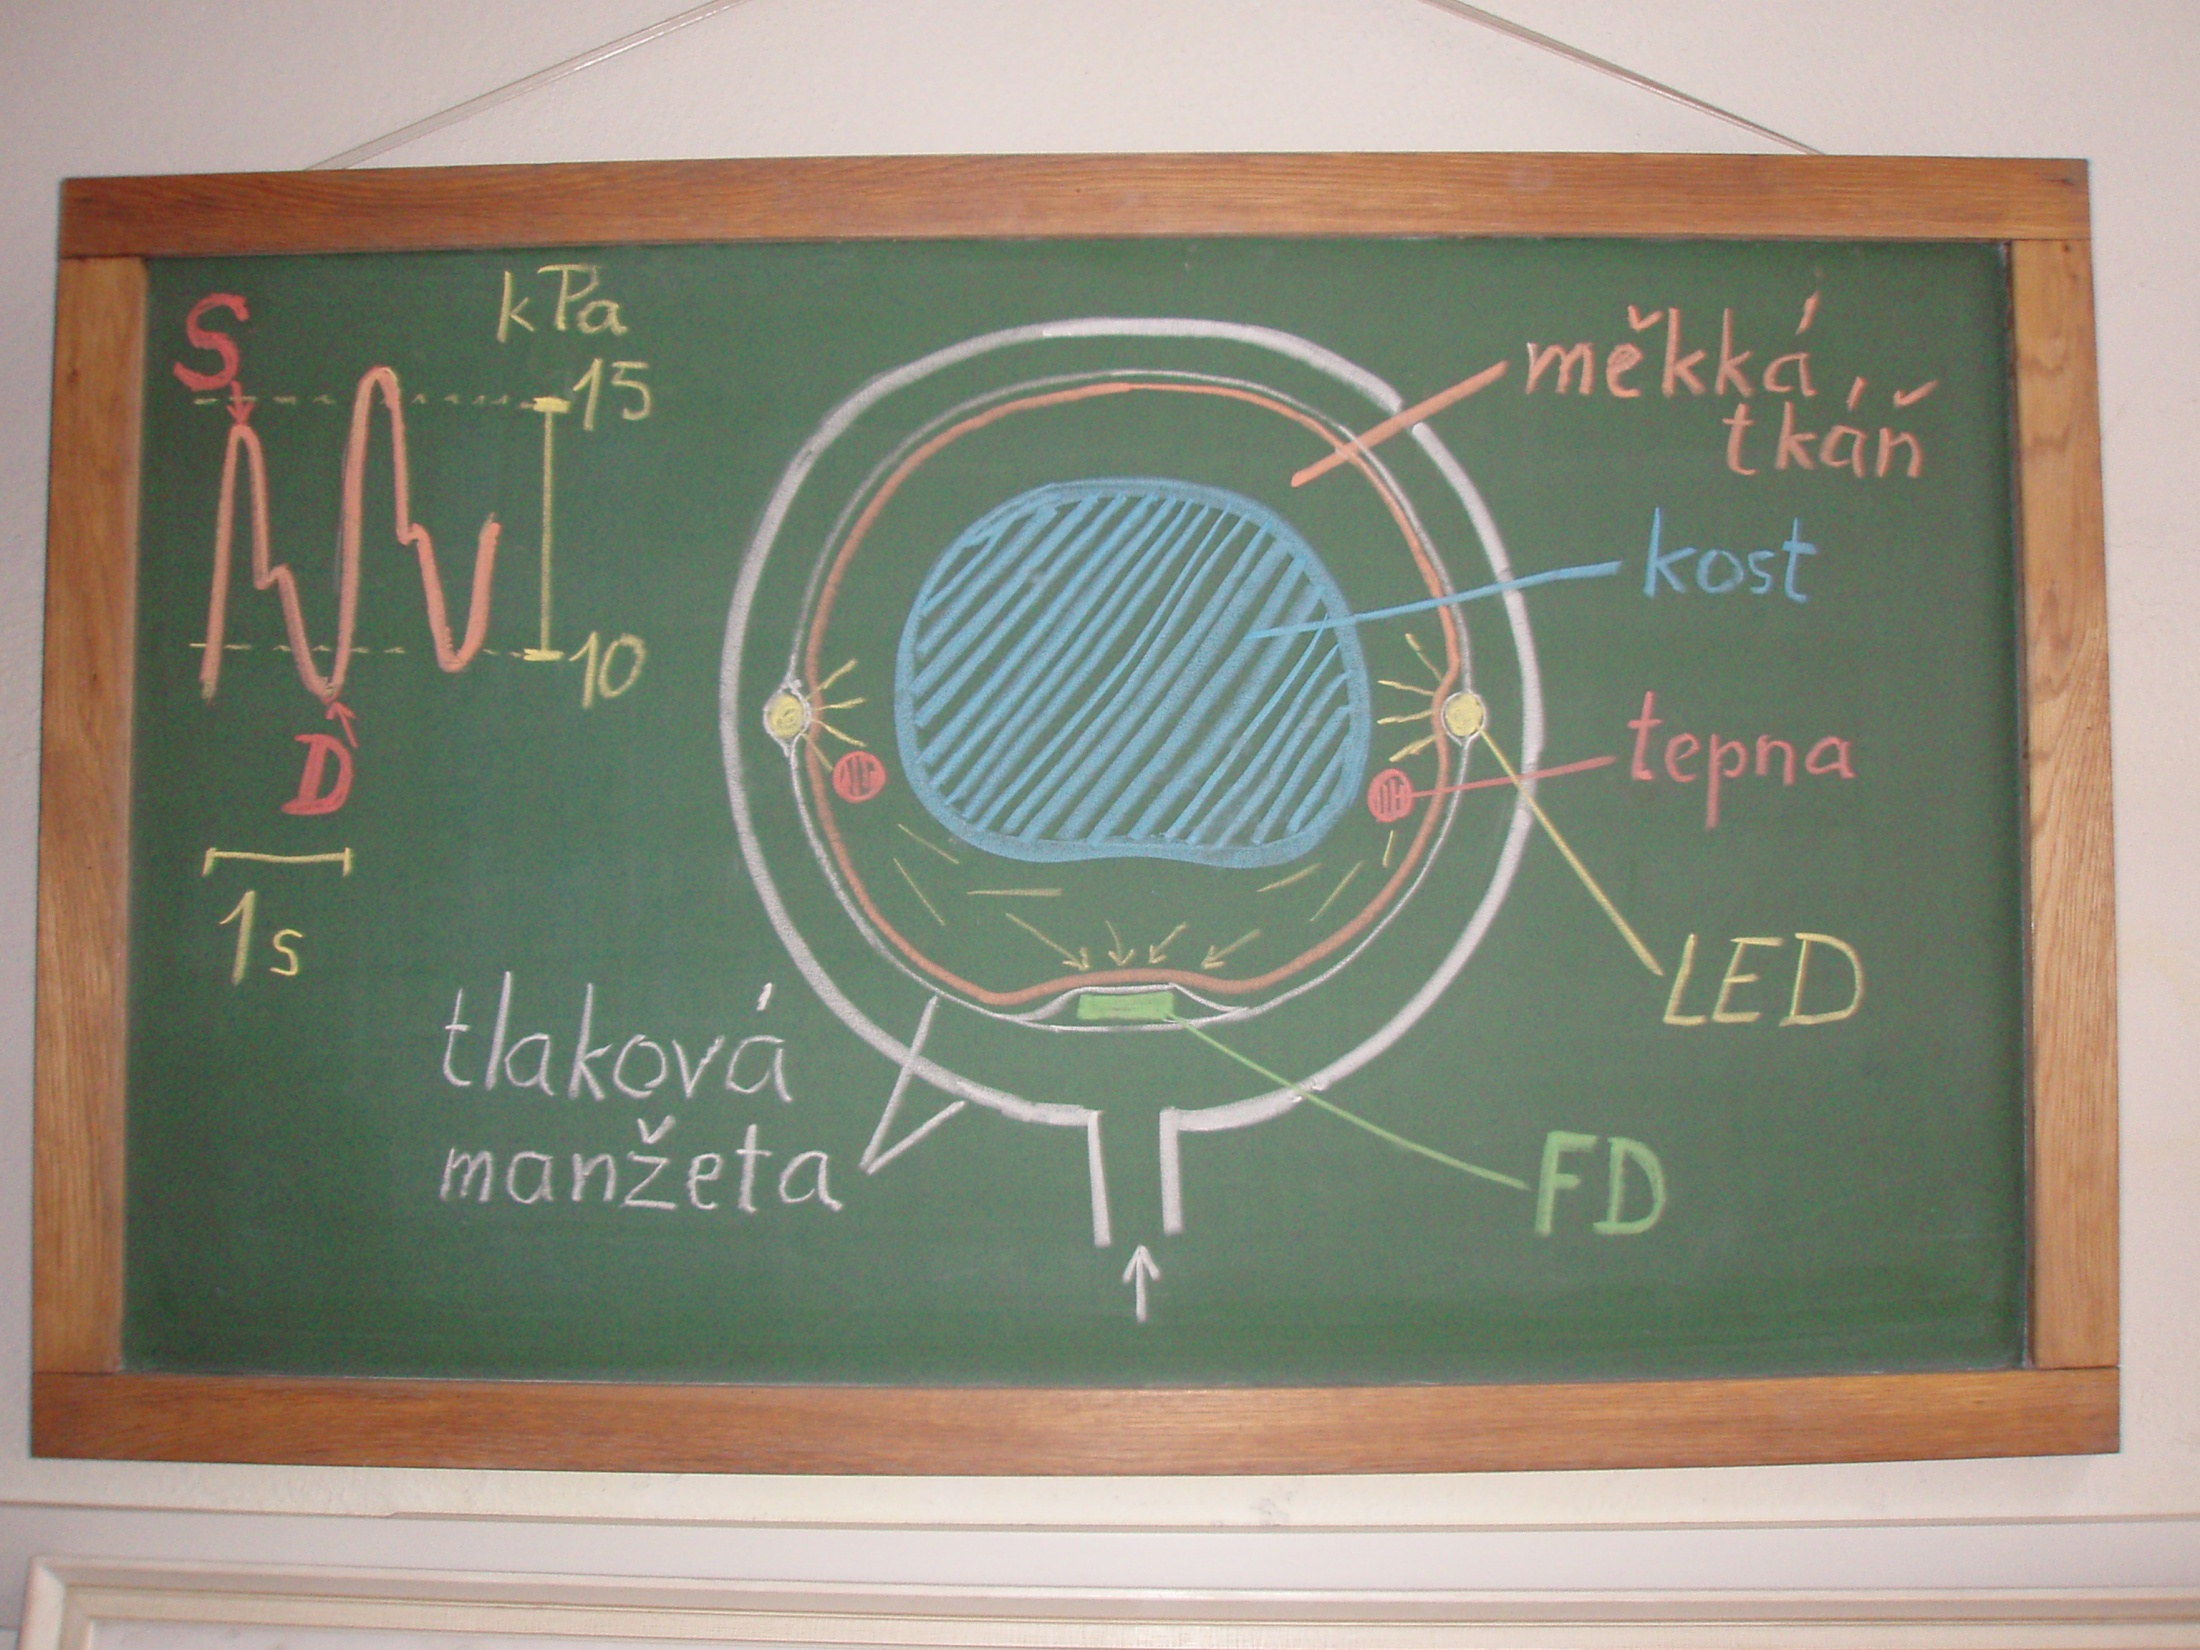 S
kPa
15
10
D
1s
měkká
tkáň
kost
tepna
LED
FD
tlaková
manžeta